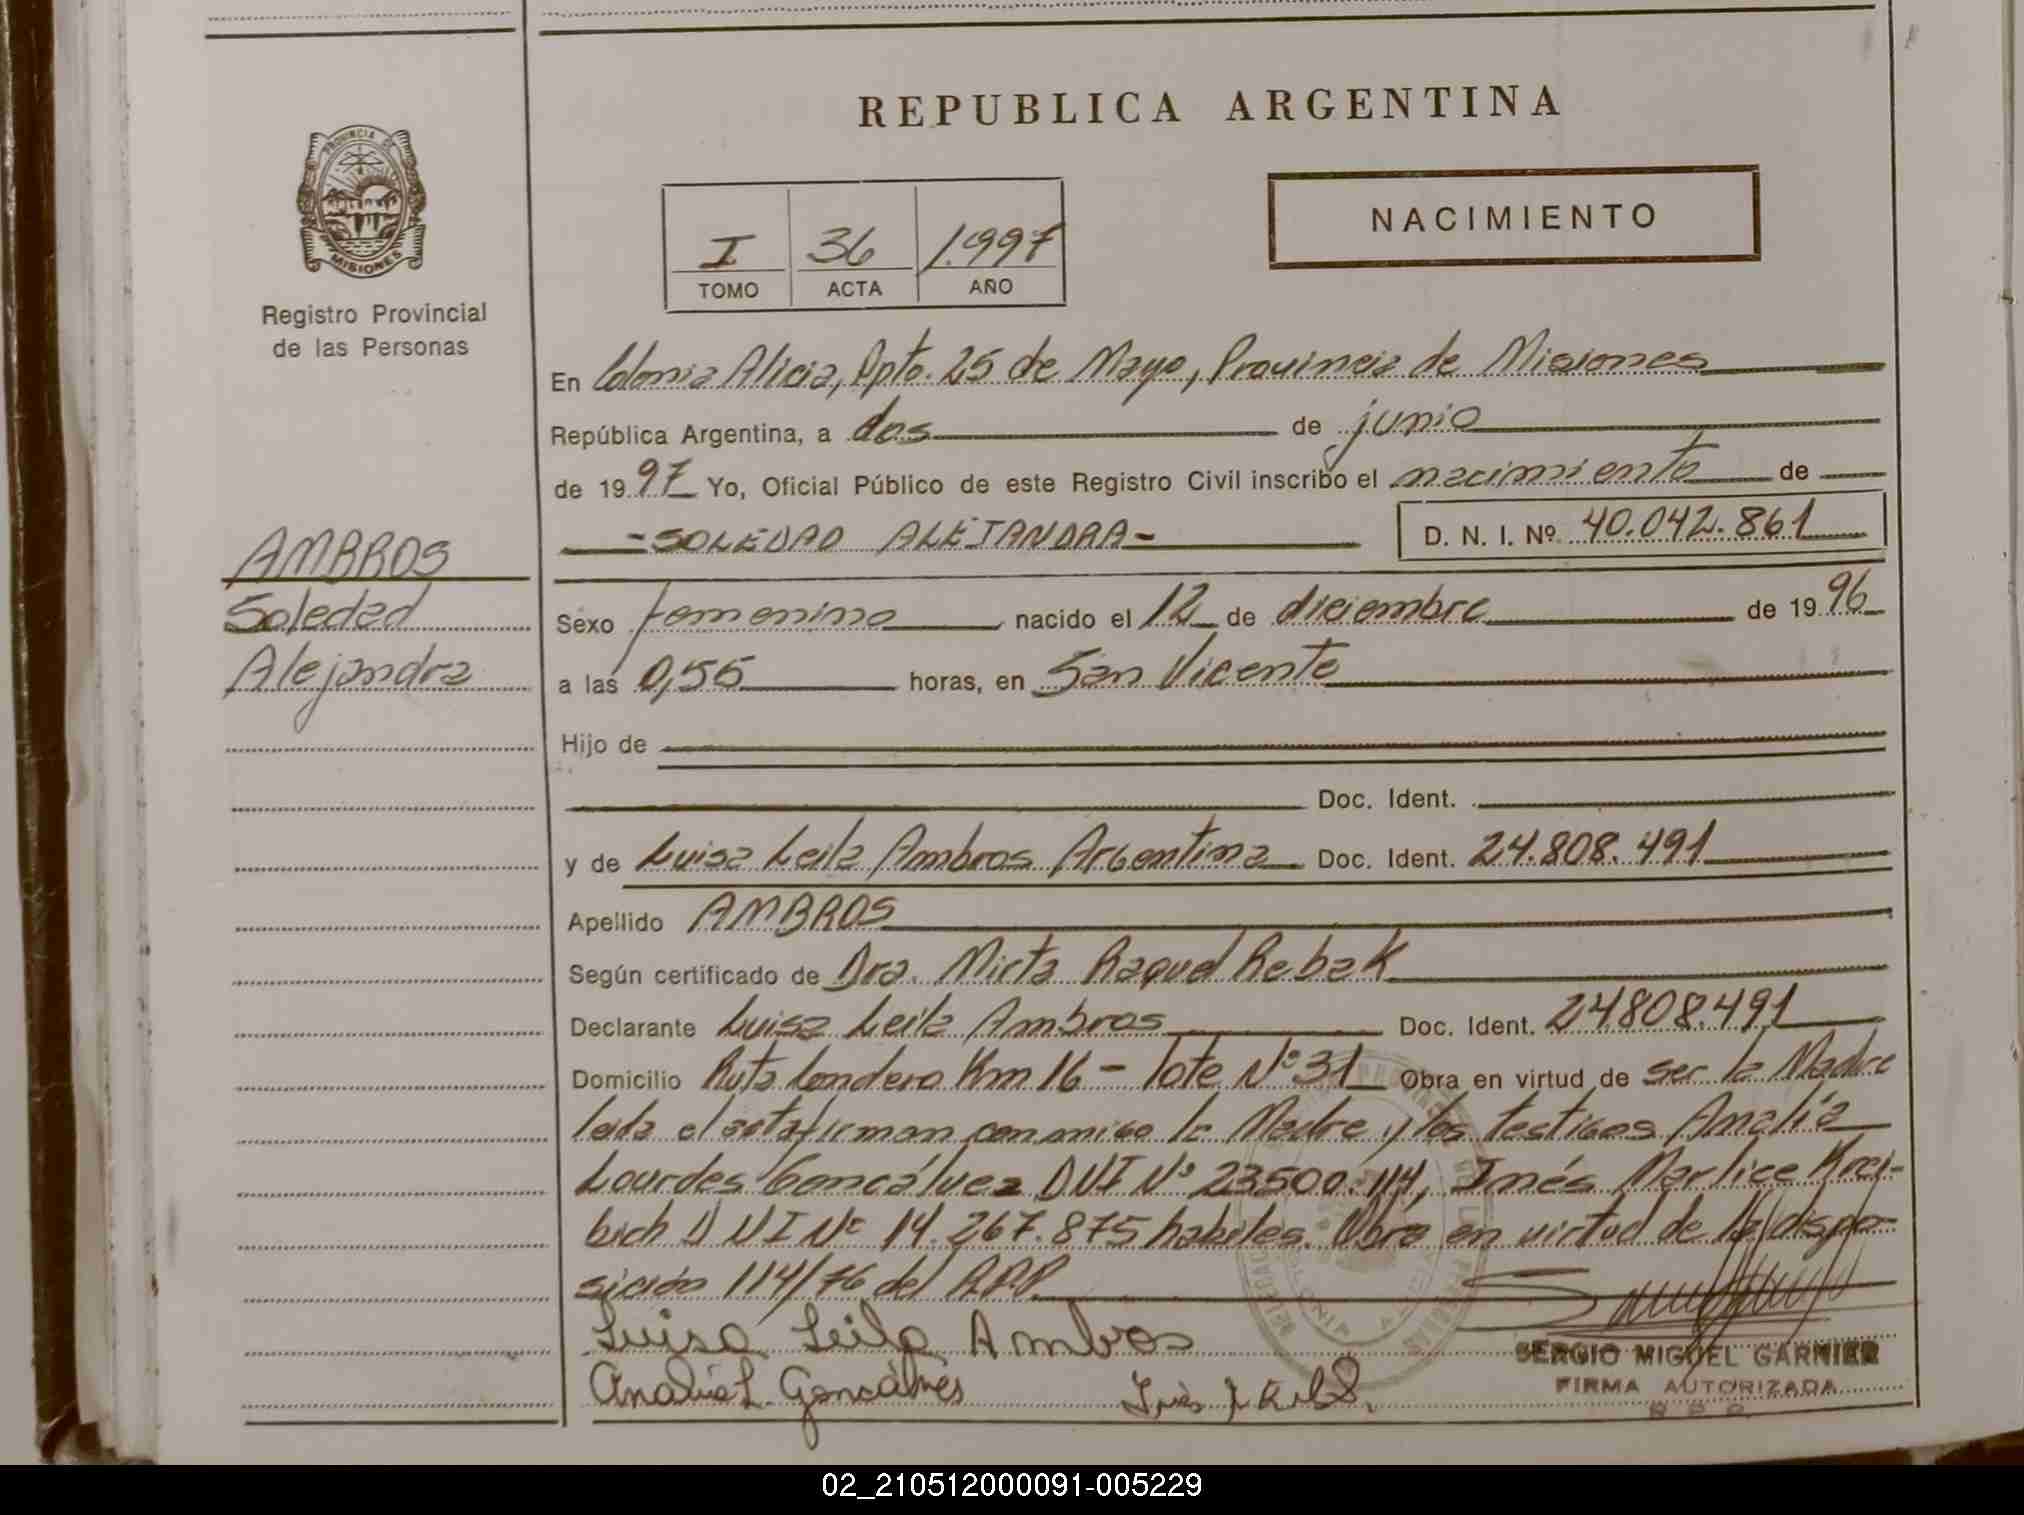 REPUBLICA ARGENTINA
PROVINCIA DE
MISIONES
Registro Provincial
de las Personas
NACIMIENTO
I 36 1.997
TOMO ACTA AÑO
En Colonia Alicia, Dpto. 25 de Mayo, Provincia de Misiones
República Argentina, a dos de junio
de 1997 Yo, Oficial Público de este Registro Civil inscribo el nacimiento de
-SOLEDAD ALEJANDRA- D. N. I. Nº 40.042.861
AMBROS
Soledad
Alejandra
Sexo femenino nacido el 12 de diciembre de 1996
a las 0,55 horas, en San Vicente
Hijo de
Doc. Ident.
y de Luisa Leila Ambros Argentina Doc. Ident. 24.808.491
Apellido AMBROS
Según certificado de Dra. Mirta Raquel Rebak
Declarante Luisa Leila Ambros Doc. Ident. 24.808.491
Domicilio Ruta Londero Km 16 - Lote Nº 31 Obra en virtud de ser la Madre
leida el acta firman conmigo la Madre y los testigos Analía
Lourdes Goncálvez DNI Nº 23.500.114, Inés Marlice Krei-
bich DNI Nº 14.267.875 habiles. Obra en virtud de la dispo-
sición 114/76 del R.P.P.
Luisa Leila Ambros
Analia L. Goncálves
SERGIO MIGUEL GARNIER
FIRMA AUTORIZADA
02_210512000091-005229